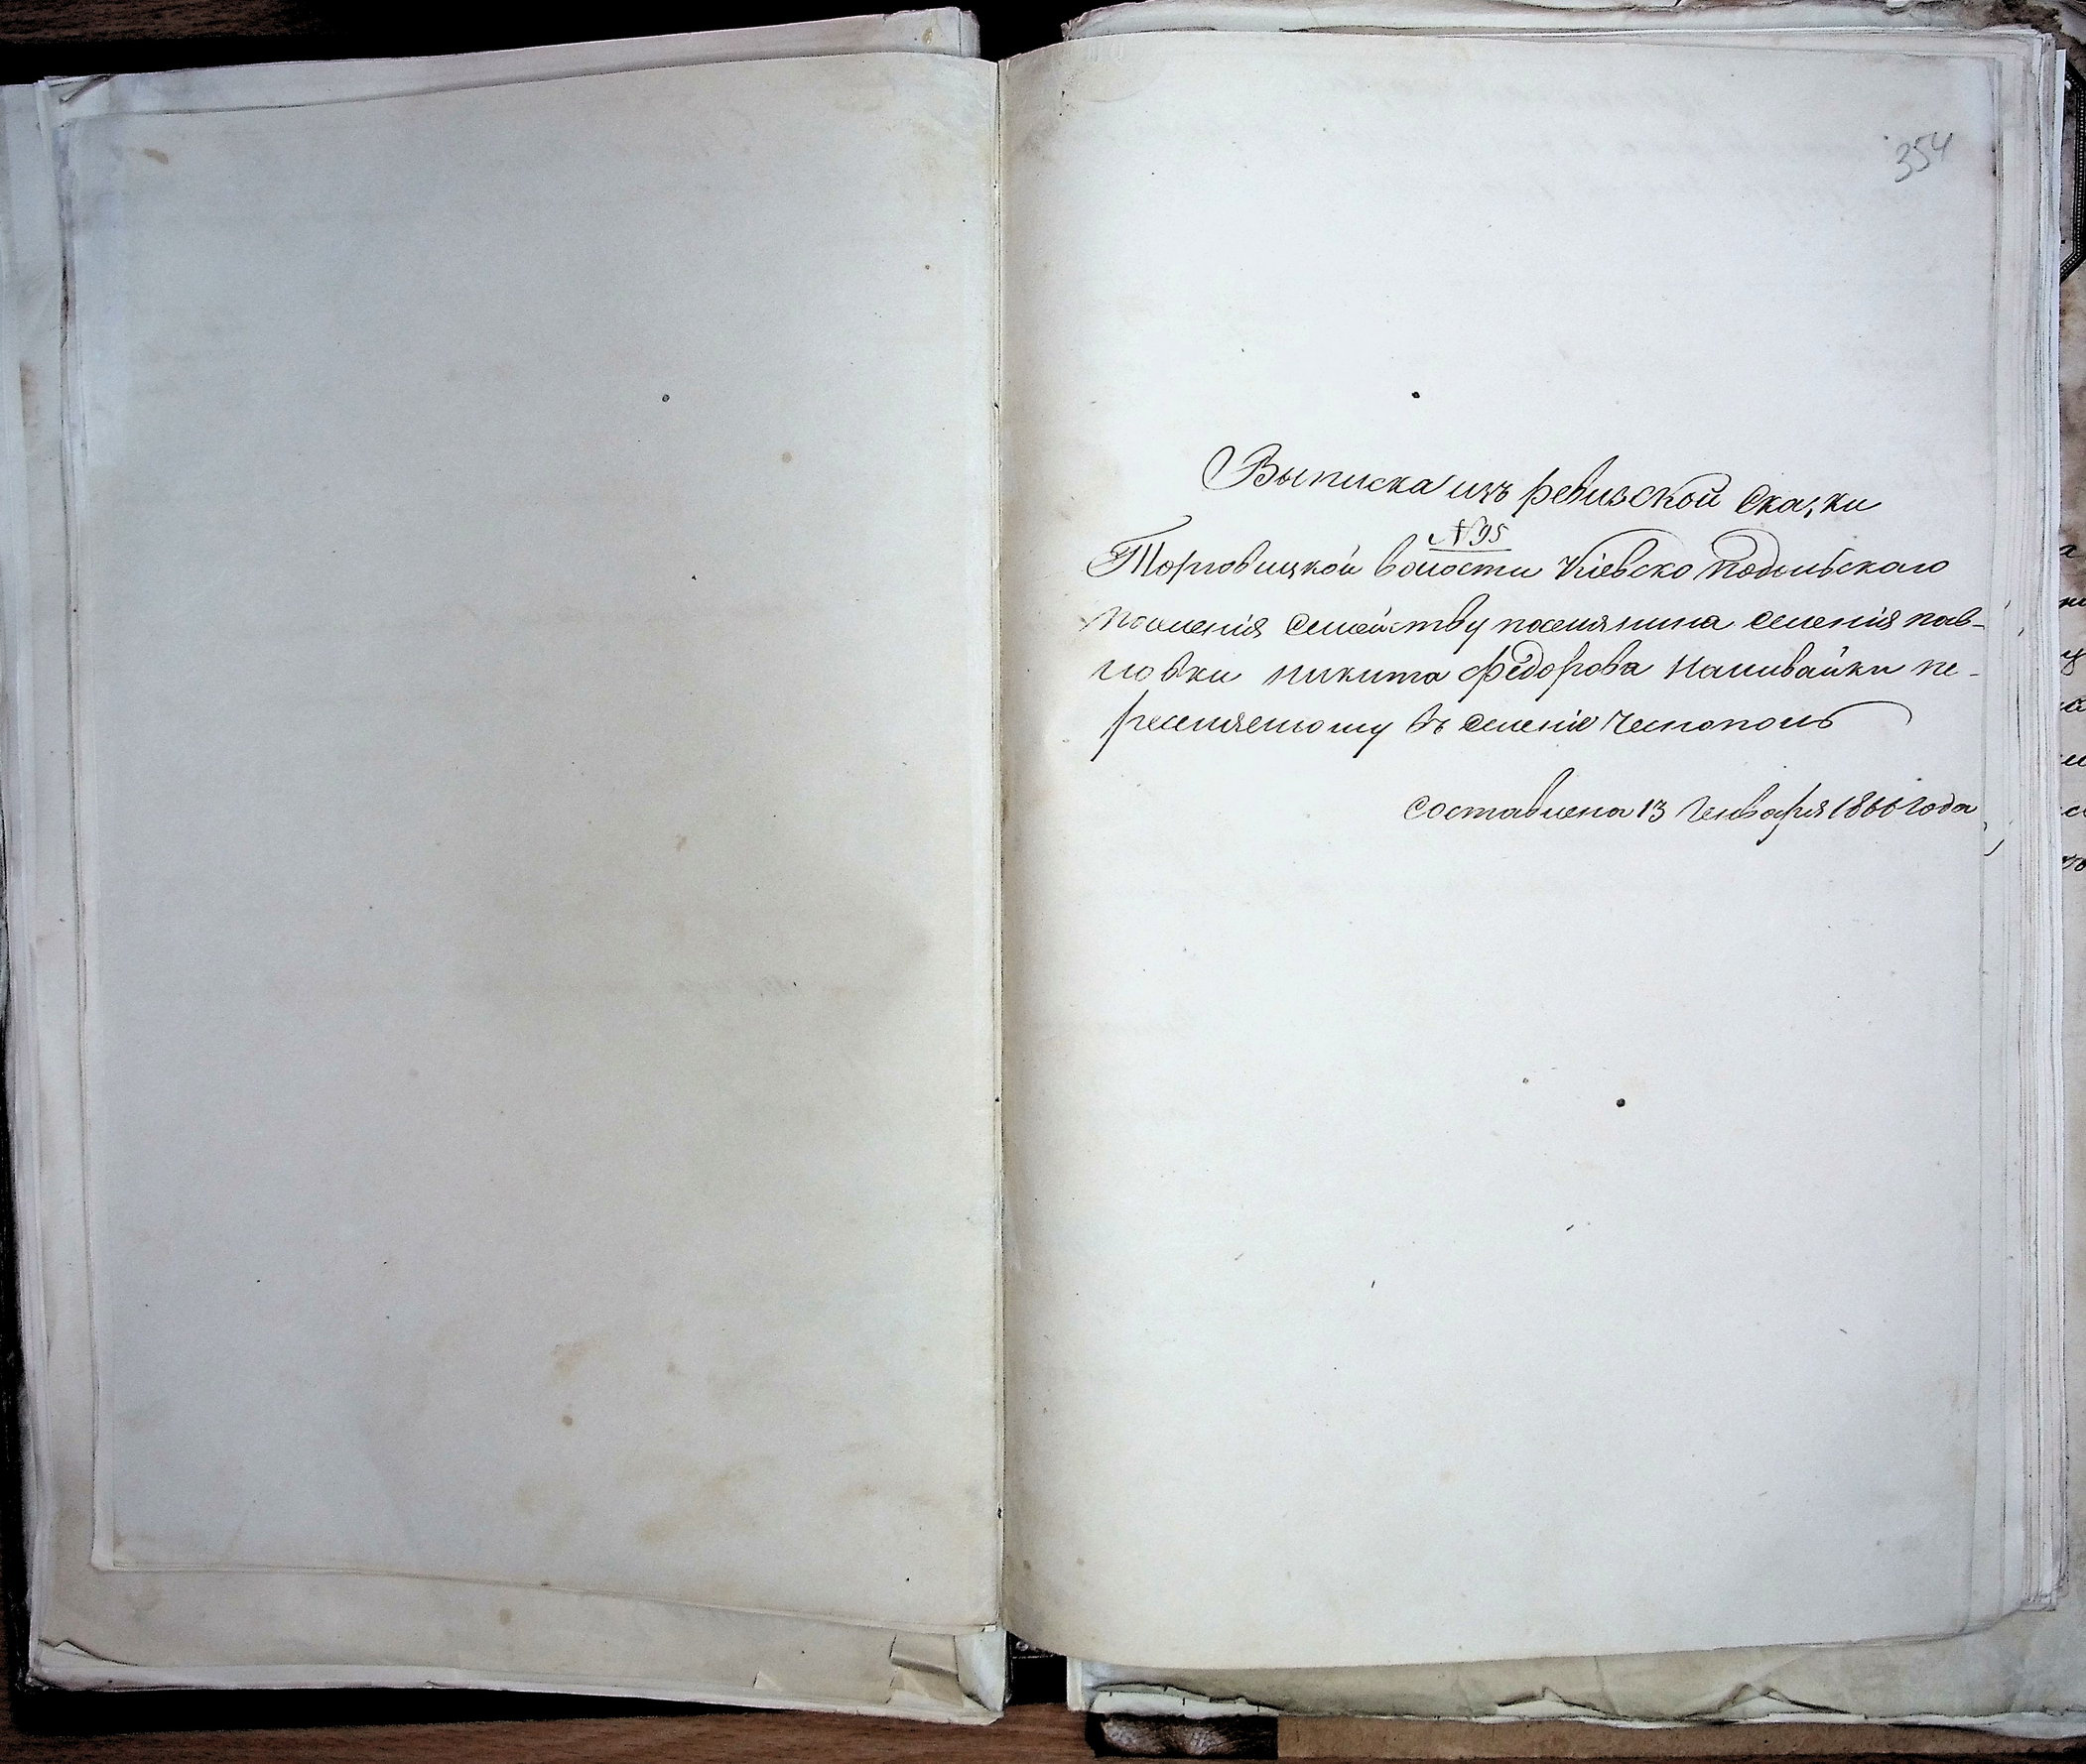 354
Выписка изъ ревизской Сказки
№ 95
Торговицкой волости Кіевско Подольскаго
поселенія семейству поселянина селенія пав-
ловки никита Федорова Наливайки пе-
реселяемому въ селеніе Чемополь
составлена 13 Генваря 1866 года